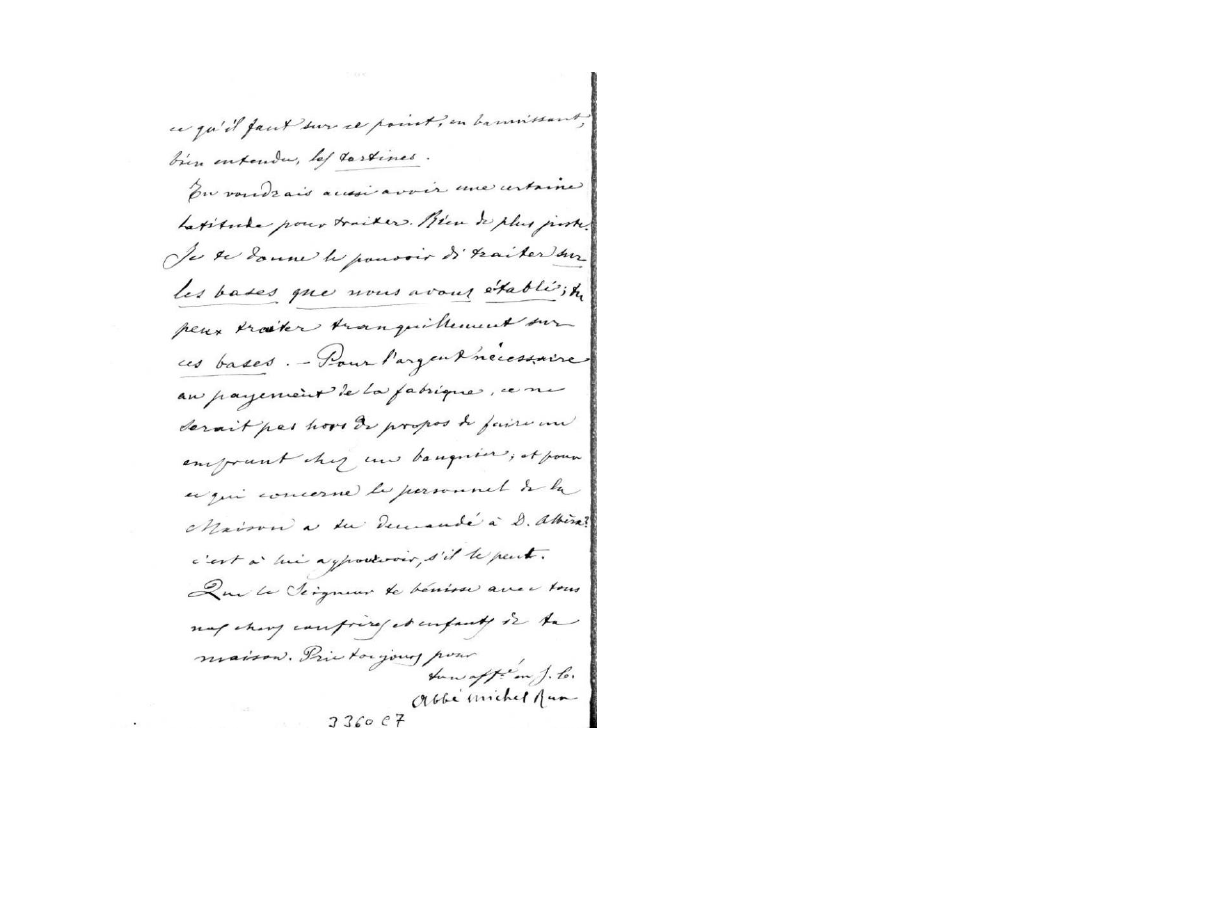 ce qu'il faut sur ce point, en bannissant,
bien entendu, les tartines.
Tu voudrais aussi avoir une certaine
latitude pour traiter. Rien de plus juste.
Je te donne le pouvoir di traiter sur
les bases que nous avons établi; tu
peux traiter tranquillement sur
ces bases. — Pour l'argent nécessaire
au payement de la fabrique, ce ne
serait pas hors de propos de faire un
emprunt chez un banquier; et pour
ce qui concerne le personnel de la
Maison a tu demandé à D. Albéra?
c'est à lui a y pourvoir, s'il le peut.
Que le Seigneur te bénisse avec tous
nos chers confrères et enfants de ta
maison. Prie toujours pour
ton aff.é en J. C.
Abbé Michel Rua
3360 C7